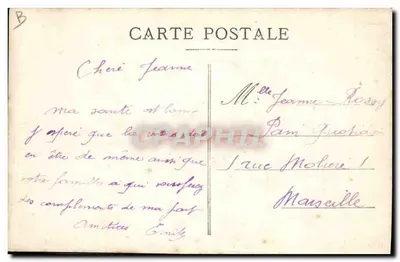 B
CARTE POSTALE
Cheré Jeanne
ma santé est bonne
j'esperé que la
en être de même ainsi que
votre famille a qui vous ferez
des complements de ma part
amitiées Emile
Mlle Jeanne Rossy
1 rue Moliere 1
Marseille